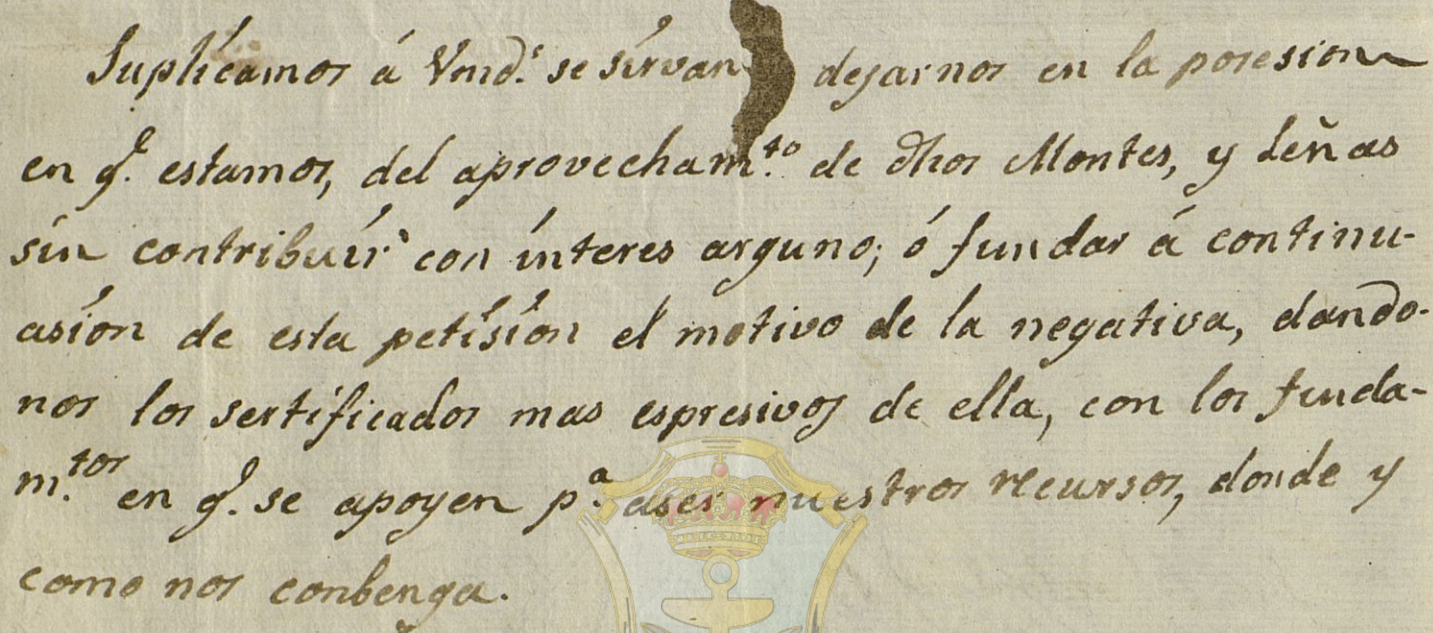 Suplícamos á Vmd.s se sírvan dejarnos en la posesion
en q.e estamos, del aprovecham.to de dhos Montes, y Leñas
sín contribuír con ínteres arguno; ó fundar á continu-
asíon de esta petísíon el motivo de la negativa, dando-
nos los sertíficados mas espresivos de ella, con los funda-
m.tos en q.e se apoyen p.a aser nuestros recursos, donde y
como nos conbenga.